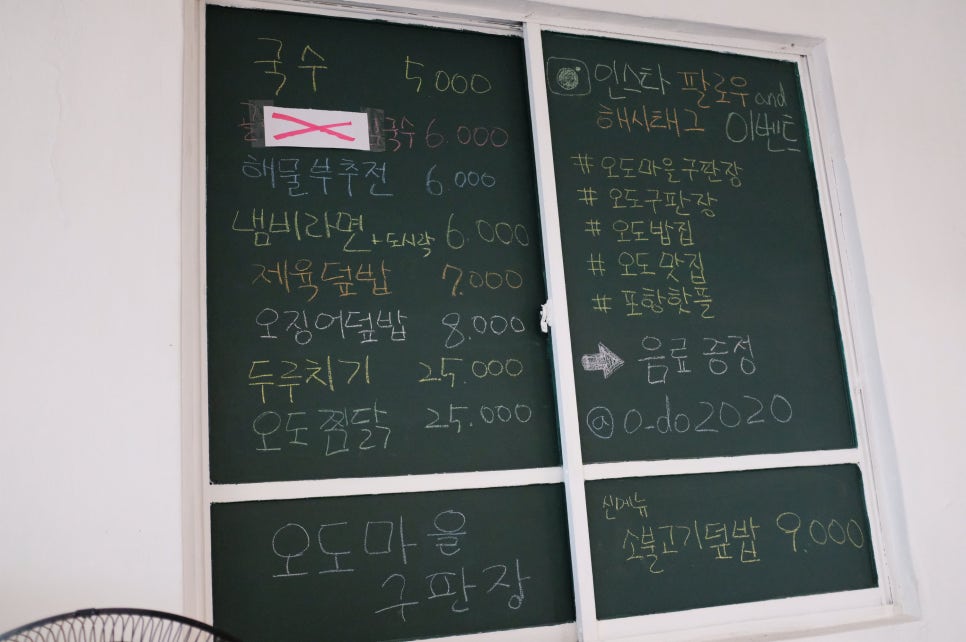 국수 5000
국수 6.000
해물부추전 6.000
냄비라면+도시락 6.000
제육덮밥 7.000
오징어덮밥 8.000
두루치기 25.000
오도찜닭 25.000
오도마을
구판장
인스타 팔로우 and
해시태그 이벤트
# 오도마을구판장
# 오도구판장
# 오도밥집
# 오도맛집
# 포항핫플
음료 증정
@o_do2020
신메뉴
소불고기덮밥 9.000